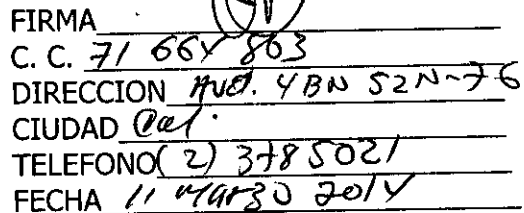 FIRMA
C. C. 71 664 863
DIRECCION Avd. 4BN 52N-76
CIUDAD Cal.
TELEFONO (2) 3785021
FECHA 11 Marzo 2014